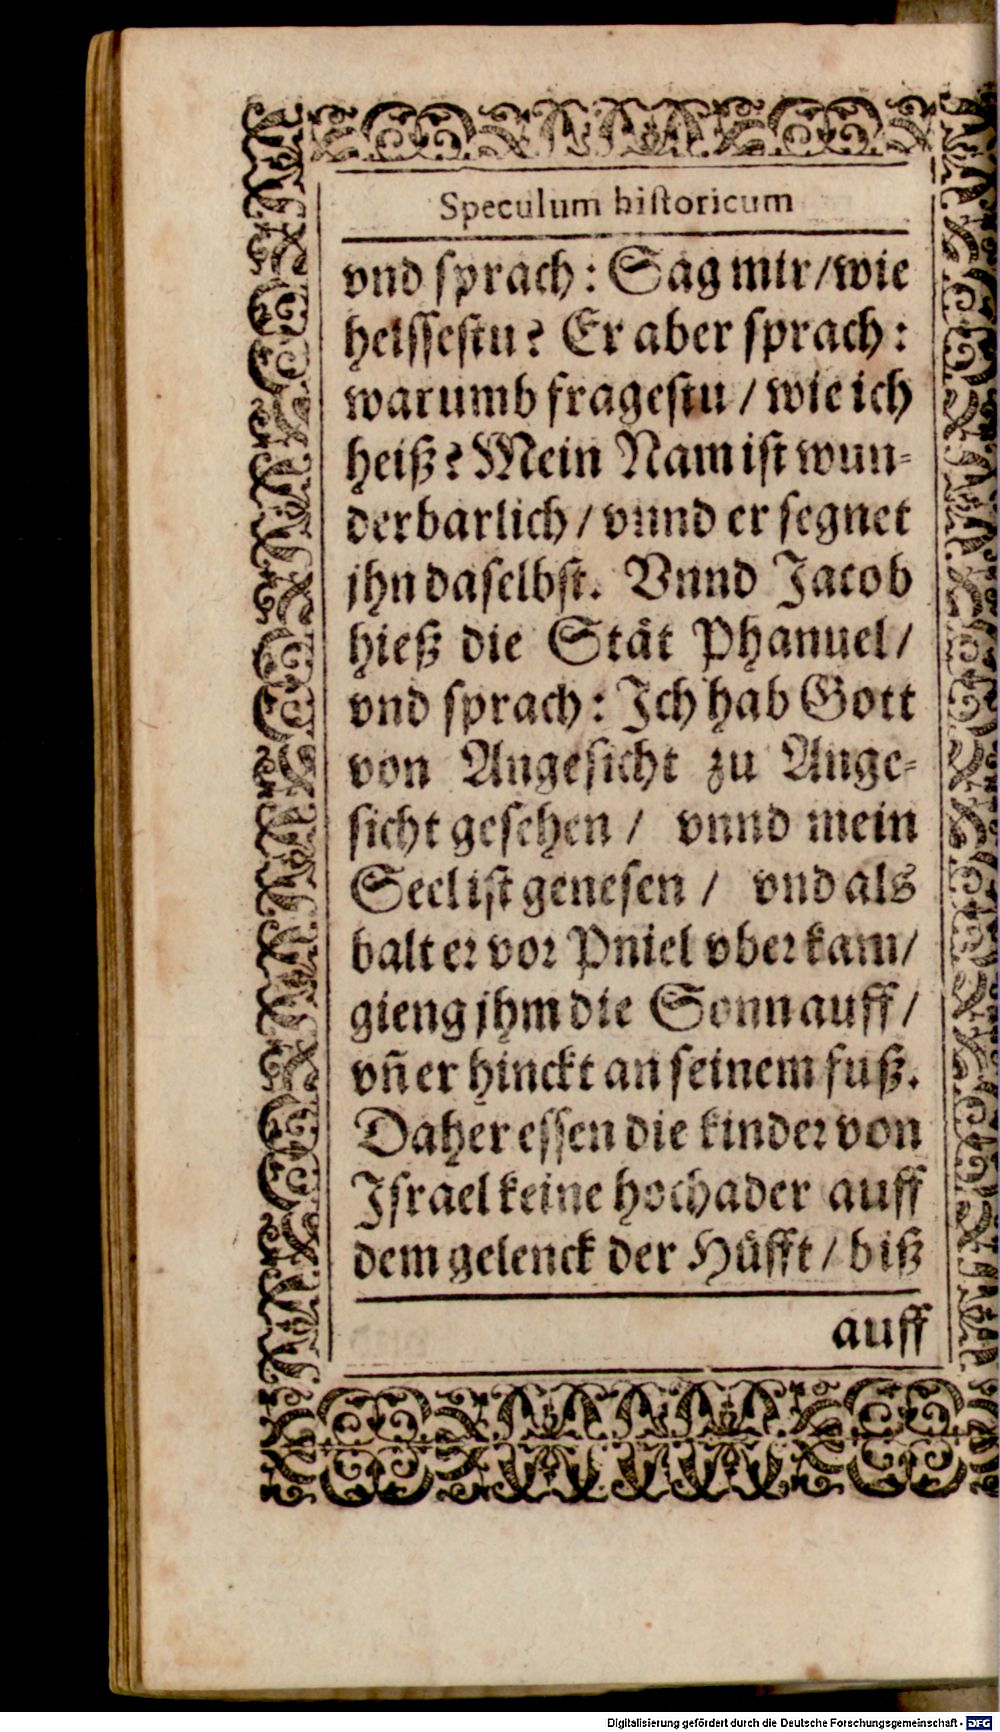 Speculum hiſtoricum
vnd ſprach: Sag mir/wie
heiſſeſtu? Er aber ſprach:
warumb frageſtu / wie ich
heiß? Mein Nam iſt wun-
derbarlich / vnnd er ſegnet
jhn daſelbſt. Vnnd Jacob
hieß die Stät Phanuel /
vnd ſprach: Ich hab Gott
von Angeſicht zu Ange-
ſicht geſehen / vnnd mein
Seel iſt geneſen / vnd als
balt er vor Pniel vber kam/
gieng jhm die Sonn auff /
vñ er hinckt an ſeinem fuß.
Daher eſſen die kinder von
Iſrael keine hochader auff
dem gelenck der Hüfft / biß
auff
Digitalisierung gefördert durch die Deutsche Forschungsgemeinschaft - DFG